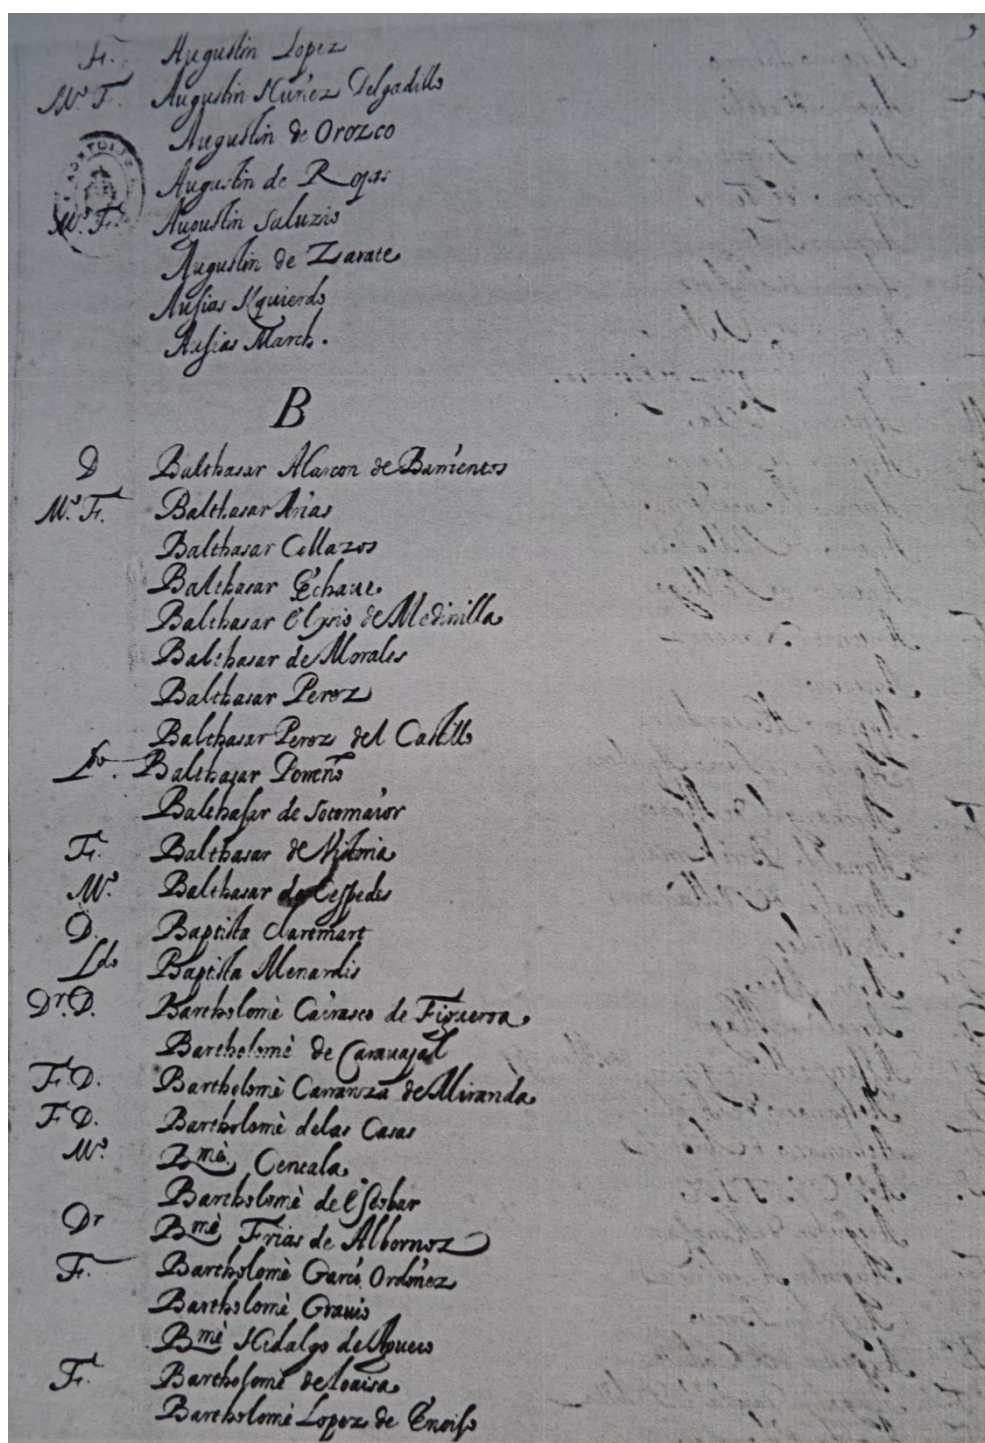 Fr. Augustin Lopez
Mº. Fr. Augustin Nuñez Delgadillo
Augustin de Orozco
Augustin de Rojas
Mº. Fr. Augustin Saluzio
Augustin de Zarate
Ausias Yzquierdo
Ausias March.
B
D Balthasar Alarcon de Barrientos
Mº. Fr. Balthasar Arias
Balthasar Collazos
Balthasar Echaue
Balthasar Elysio de Medinilla
Balthasar de Morales
Balthasar Perez
Balthasar Perez del Castillo
Ldo. Balthasar Porreño
Balthasar de Sotomaior
Fr. Balthasar de Victoria
Mº. Balthasar de Cespedes
D. Baptista Claremart
Ldo Baptista Menardis
Dr. D. Bartholomè Cairasco de Figueroa
Bartholomè de Carauajal
F. D. Bartholomè Carranza de Miranda
F. D. Bartholomè delas Casas
Mº. Bmè. Centala
Bartholomè de Escobar
Dr Bmè Frias de Albornoz
F. Bartholomè Garci Ordoñez
Bartholomè Grauio
Bmè Hidalgo de Aguero
Fr. Bartholomè de loaisa
Bartholomè Lopez de Enciso